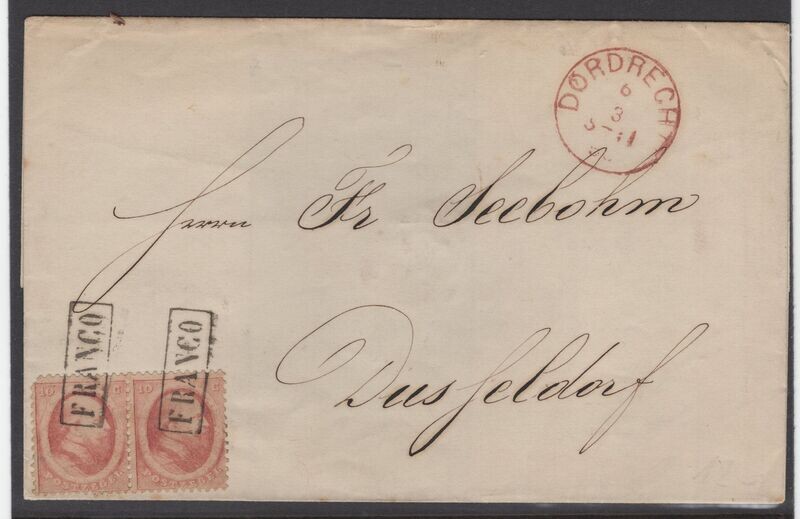 DORDRECHT
6
3
Herrn Fr Seebohm
Dusseldorf
FRANCO FRANCO
10 C 10 C
POSTZEGEL POSTZEGEL